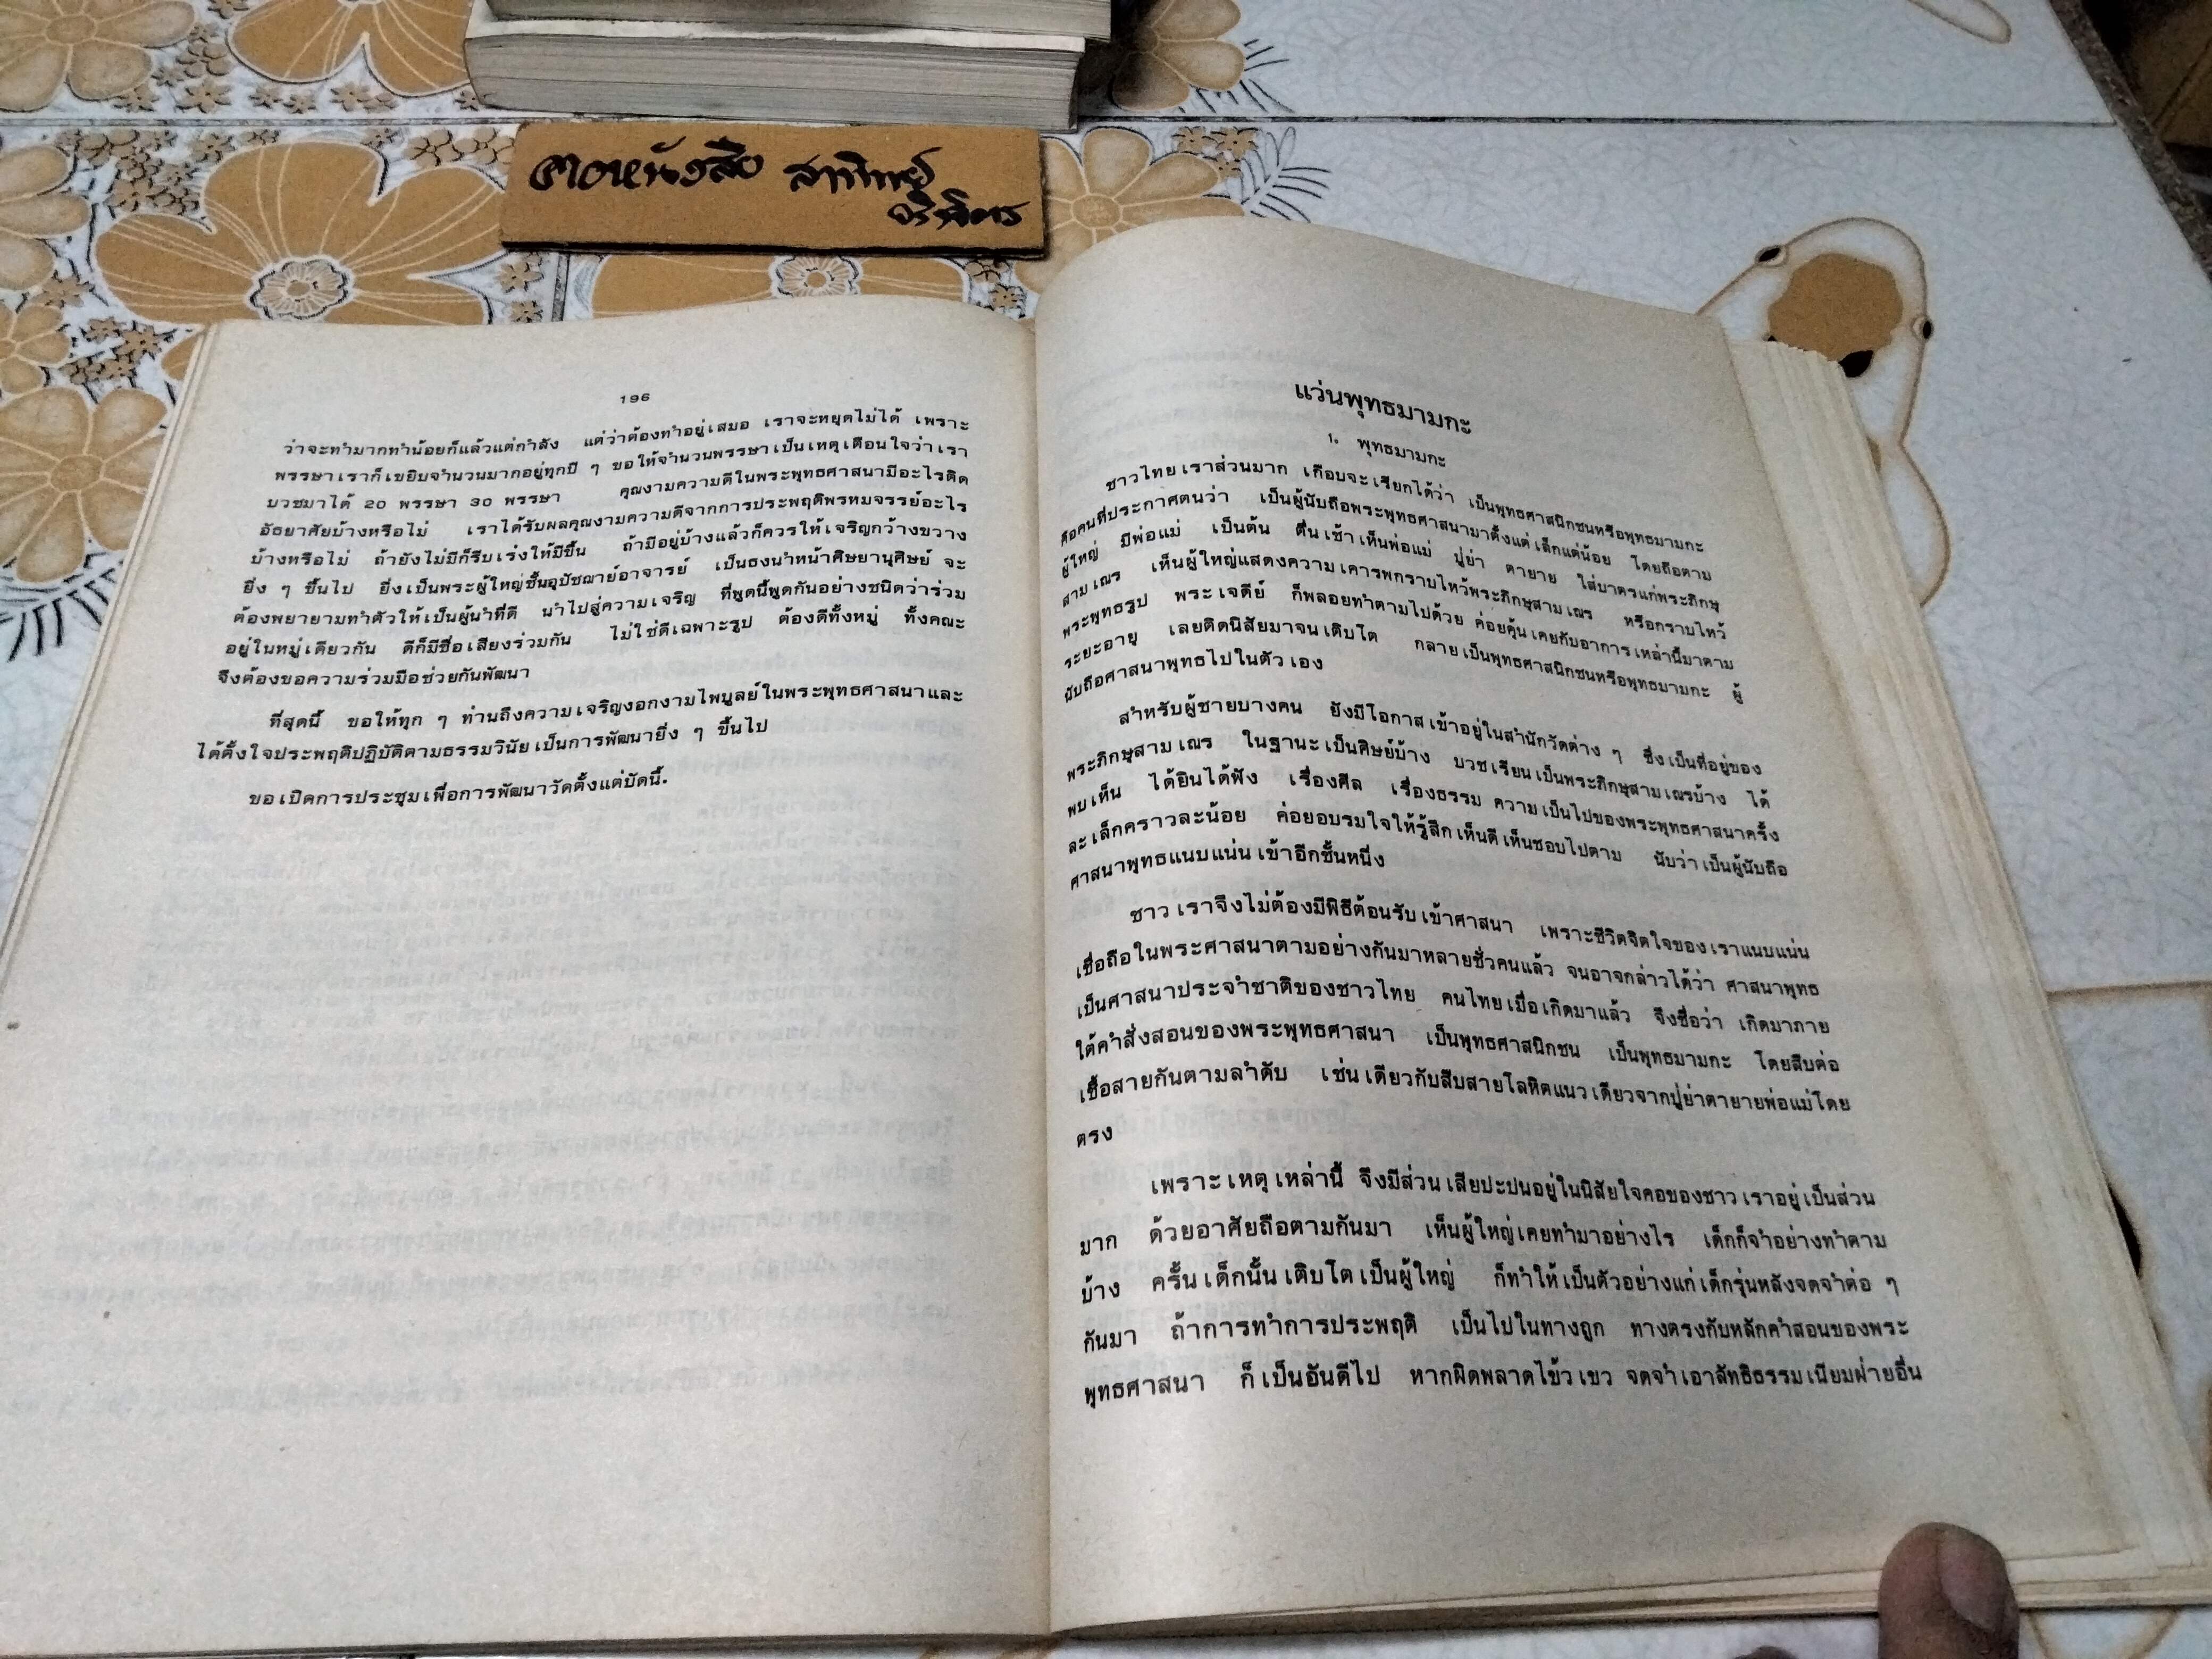 196
ว่าจะทำมากทำน้อยก็แล้วแต่กำลัง แต่ว่าต้องทำอยู่เสมอ เราจะหยุดไม่ได้ เพราะ
พรรษาเราก็เขยิบจำนวนมากอยู่ทุกปี ๆ ขอให้จำนวนพรรษาเป็นเหตุเตือนใจว่าเรา
บวชมาได้ 20 พรรษา 30 พรรษา คุณงามความดีในพระพุทธศาสนามีอะไรติด
อัธยาศัยบ้างหรือไม่ เราได้รับผลคุณงามความดีจากการประพฤติพรหมจรรย์อะไร
บ้างหรือไม่ ถ้ายังไม่มีก็รีบเร่งให้มีขึ้น ถ้ามีอยู่บ้างแล้วก็ควรให้เจริญกว้างขวาง
ยิ่ง ๆ ขึ้นไป ยิ่งเป็นพระผู้ใหญ่ชั้นอุปัชฌาย์อาจารย์ เป็นธงนำหน้าศิษยานุศิษย์ จะ
ต้องพยายามทำตัวให้เป็นผู้นำที่ดี นำไปสู่ความเจริญ ที่พูดนี้พูดกันอย่างชนิดว่าร่วม
อยู่ในหมู่เดียวกัน ดีก็มีชื่อเสียงร่วมกัน ไม่ใช่ดีเฉพาะรูป ต้องดีทั้งหมู่ ทั้งคณะ
จึงต้องขอความร่วมมือช่วยกันพัฒนา
ที่สุดนี้ ขอให้ทุก ๆ ท่านถึงความเจริญงอกงามไพบูลย์ในพระพุทธศาสนาและ
ได้ตั้งใจประพฤติปฏิบัติตามธรรมวินัยเป็นการพัฒนายิ่ง ๆ ขึ้นไป
ขอเปิดการประชุมเพื่อการพัฒนาวัดตั้งแต่บัดนี้.
แว่นพุทธมามกะ
1. พุทธมามกะ
ชาวไทยเราส่วนมาก เกือบจะเรียกได้ว่า เป็นพุทธศาสนิกชนหรือพุทธมามกะ
คือคนที่ประกาศตนว่า เป็นผู้นับถือพระพุทธศาสนามาตั้งแต่เล็กแต่น้อย โดยถือตาม
ผู้ใหญ่ มีพ่อแม่ เป็นต้น ตื่นเช้าเห็นพ่อแม่ ปู่ย่า ตายาย ใส่บาตรแก่พระภิกษุ
สามเณร เห็นผู้ใหญ่แสดงความเคารพกราบไหว้พระภิกษุสามเณร หรือกราบไหว้
พระพุทธรูป พระเจดีย์ ก็พลอยทำตามไปด้วย ค่อยคุ้นเคยกับอาการเหล่านี้มาตาม
ระยะอายุ เลยติดนิสัยมาจนเติบโต กลายเป็นพุทธศาสนิกชนหรือพุทธมามกะ ผู้
นับถือศาสนาพุทธไปในตัวเอง
สำหรับผู้ชายบางคน ยังมีโอกาสเข้าอยู่ในสำนักวัดต่าง ๆ ซึ่งเป็นที่อยู่ของ
พระภิกษุสามเณร ในฐานะเป็นศิษย์บ้าง บวชเรียนเป็นพระภิกษุสามเณรบ้าง ได้
พบเห็น ได้ยินได้ฟัง เรื่องศีล เรื่องธรรม ความเป็นไปของพระพุทธศาสนาครั้ง
ละเล็กคราวละน้อย ค่อยอบรมใจให้รู้สึกเห็นดีเห็นชอบไปตาม นับว่าเป็นผู้นับถือ
ศาสนาพุทธแนบแน่นเข้าอีกชั้นหนึ่ง
ชาวเราจึงไม่ต้องมีพิธีต้อนรับเข้าศาสนา เพราะชีวิตจิตใจของเราแนบแน่น
เชื่อถือในพระศาสนาตามอย่างกันมาหลายชั่วคนแล้ว จนอาจกล่าวได้ว่า ศาสนาพุทธ
เป็นศาสนาประจำชาติของชาวไทย คนไทยเมื่อเกิดมาแล้ว จึงชื่อว่า เกิดมาภาย
ใต้คำสั่งสอนของพระพุทธศาสนา เป็นพุทธศาสนิกชน เป็นพุทธมามกะ โดยสืบต่อ
เชื้อสายกันตามลำดับ เช่นเดียวกับสืบสายโลหิตแนวเดียวจากปู่ย่าตายายพ่อแม่โดย
ตรง
เพราะเหตุเหล่านี้ จึงมีส่วนเสียปะปนอยู่ในนิสัยใจคอของชาวเราอยู่เป็นส่วน
มาก ด้วยอาศัยถือตามกันมา เห็นผู้ใหญ่เคยทำมาอย่างไร เด็กก็จำอย่างทำตาม
บ้าง ครั้นเด็กนั้นเติบโตเป็นผู้ใหญ่ ก็ทำให้เป็นตัวอย่างแก่เด็กรุ่นหลังจดจำต่อ ๆ
กันมา ถ้าการทำการประพฤติ เป็นไปในทางถูก ทางตรงกับหลักคำสอนของพระ
พุทธศาสนา ก็เป็นอันดีไป หากผิดพลาดไข้วเขว จดจำเอาลัทธิธรรมเนียมฝ่ายอื่น